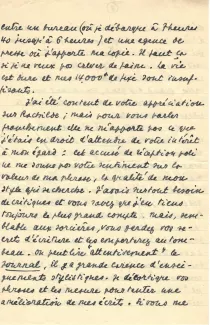 entre un bureau (où je débarque à 7 heures
40 jusqu'à 6 heures) et une agence de
presse où j'apporte ma copie. Il faut ça
si je ne veux pas crever de faim. La vie
est dure et mes 14.000 de fixe sont insuf-
fisants.
J'ai été content de votre appréciation
sur Rachilde ; mais pour vous parler
franchement elle ne m'apporte pas ce que
j'étais en droit d'attendre de votre intérêt
à mon égard : cet accusé de réception poli
ne me donne pas votre sentiment sur la
valeur de ma phrase, la qualité de mon
style que je cherche. J'avais surtout besoin
de critiques et vous savez que j'en tiens
toujours le plus grand compte. Mais, sem-
blable aux sorcières, vous perdez vos se-
crets d'écriture et les emporterez au tom-
beau. On peut lire attentivement le
Journal, il y a grande carence d'ensei-
gnements stylistiques. Je décortique vos
phrases et les mesure pour tenter une
amélioration de mes écrits. Si vous me